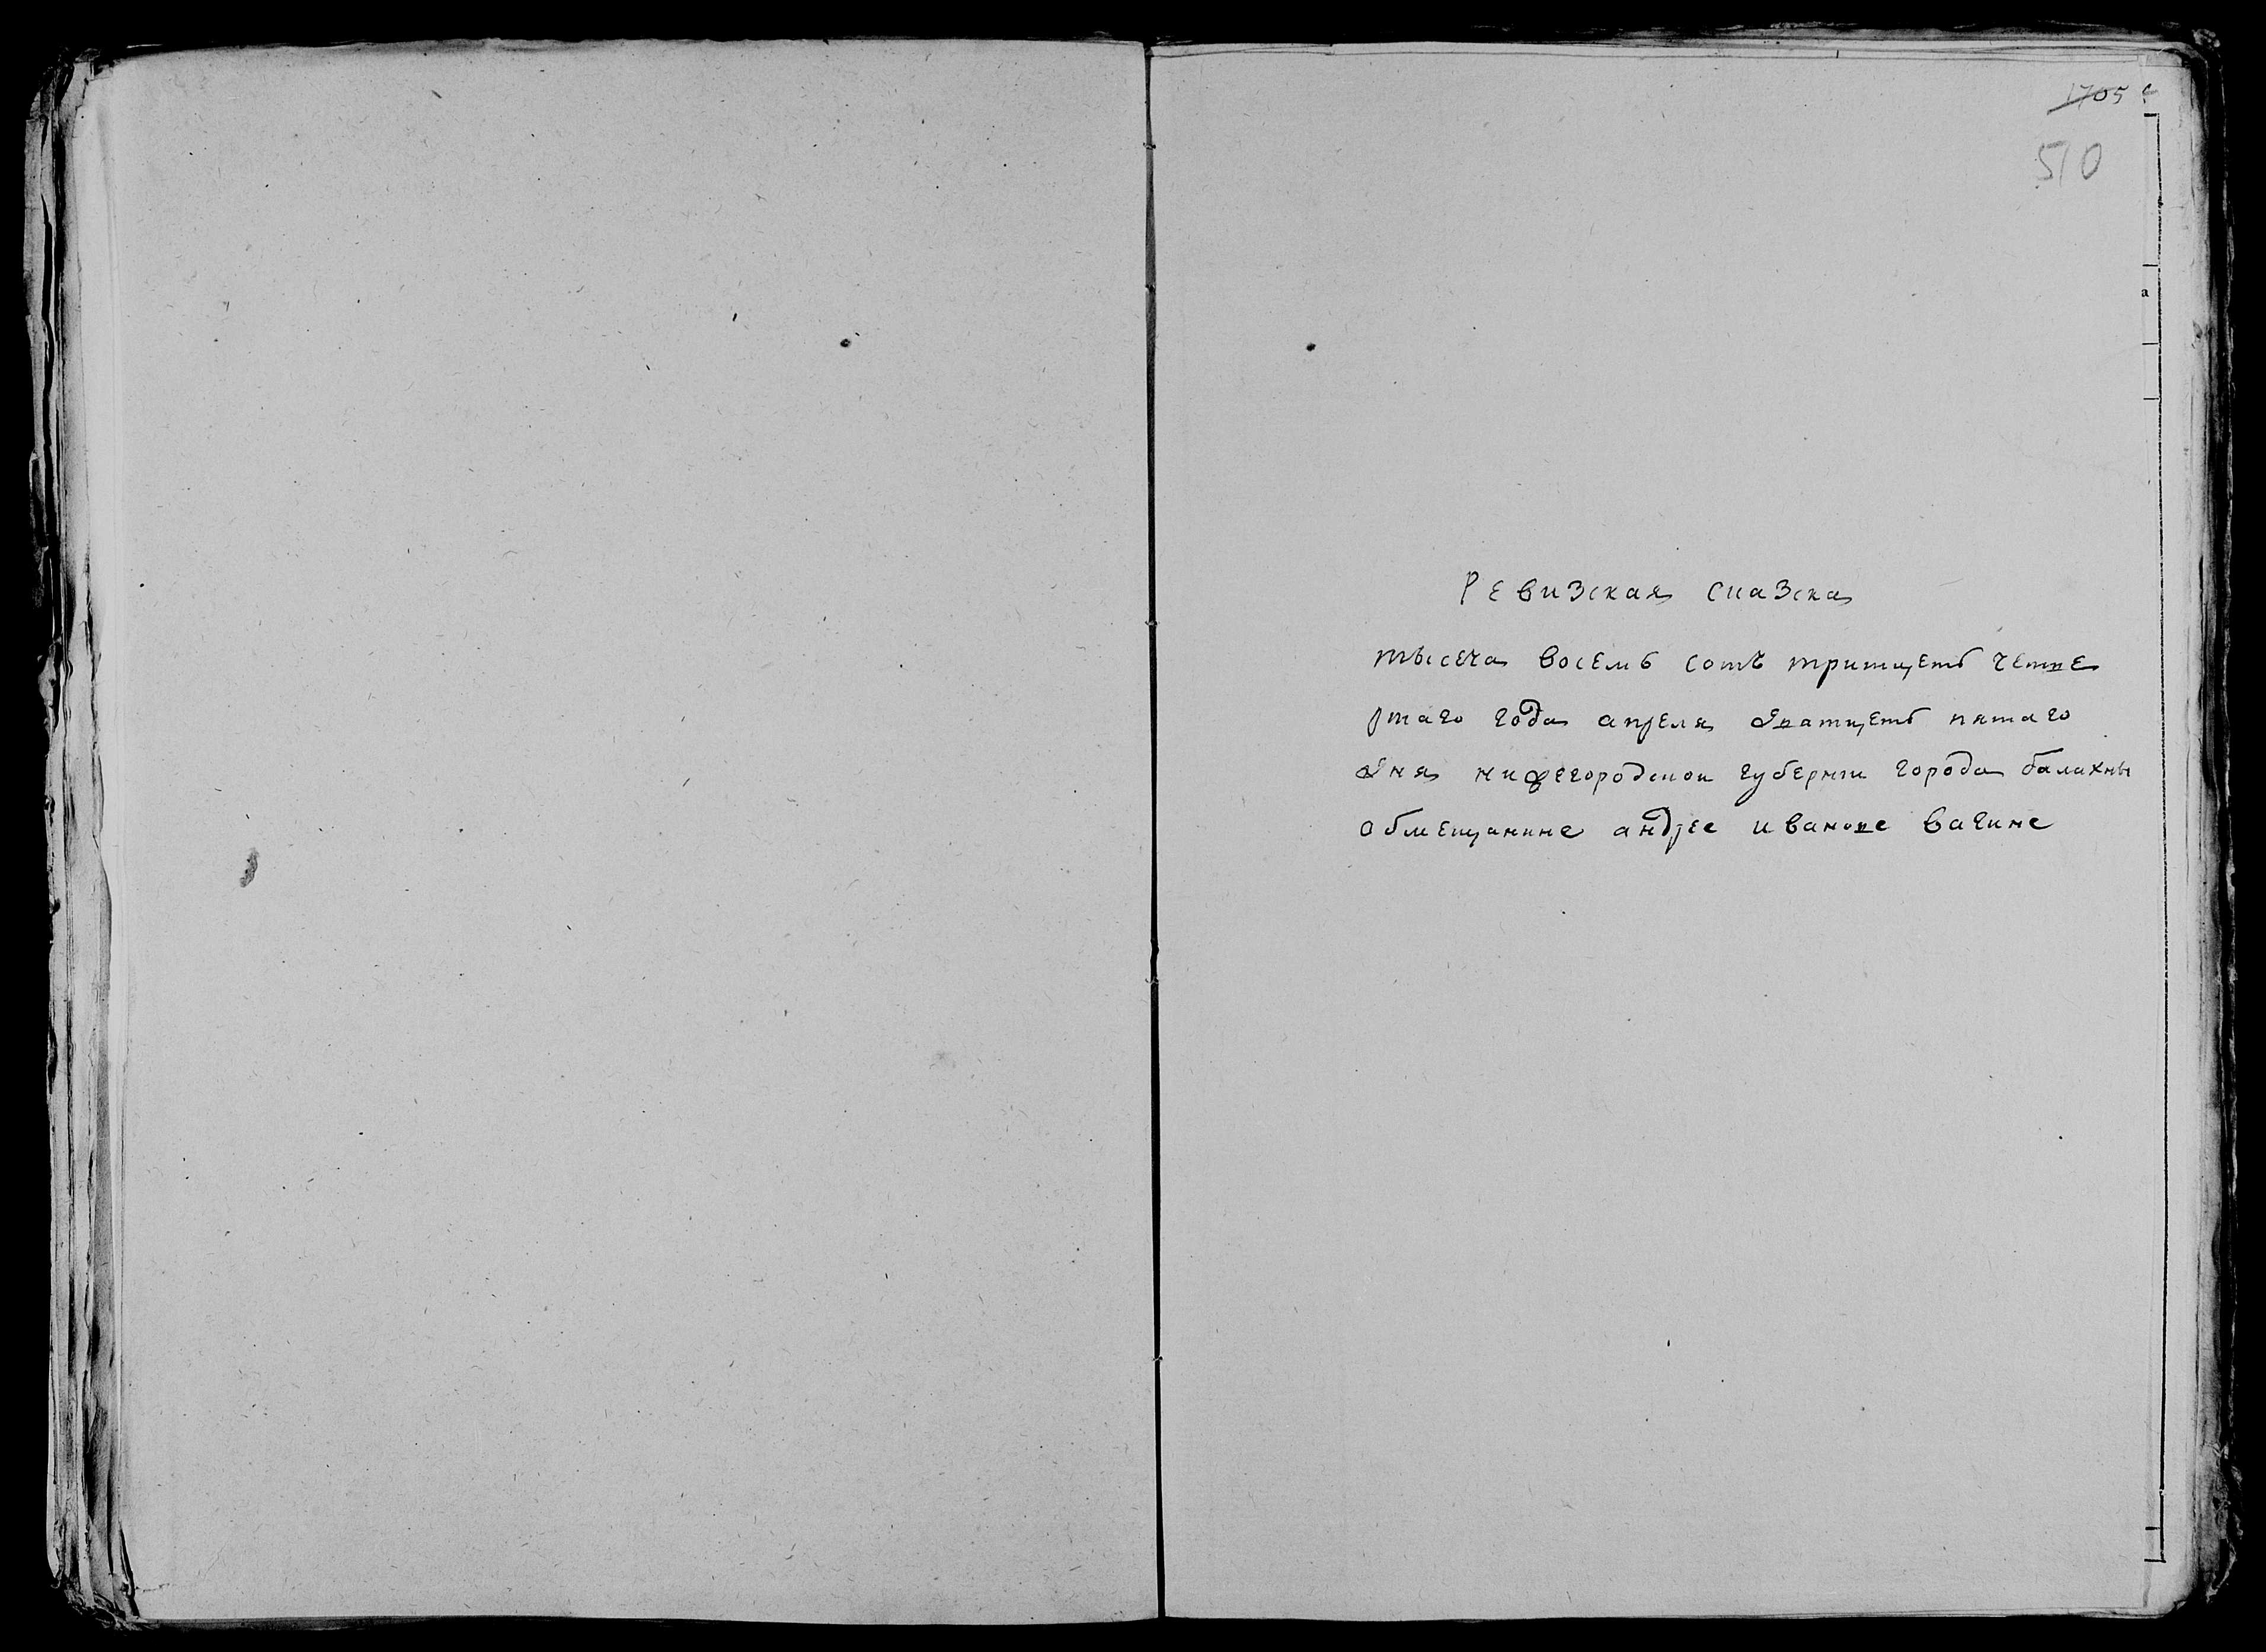 1705
510
Ревизская сказска
тысеча восемь сотъ тритцеть четве
ртаго года апреля дватцеть пятаго
дня нижегородскои губернии города балахны
обмещанине андрее иванове вагине